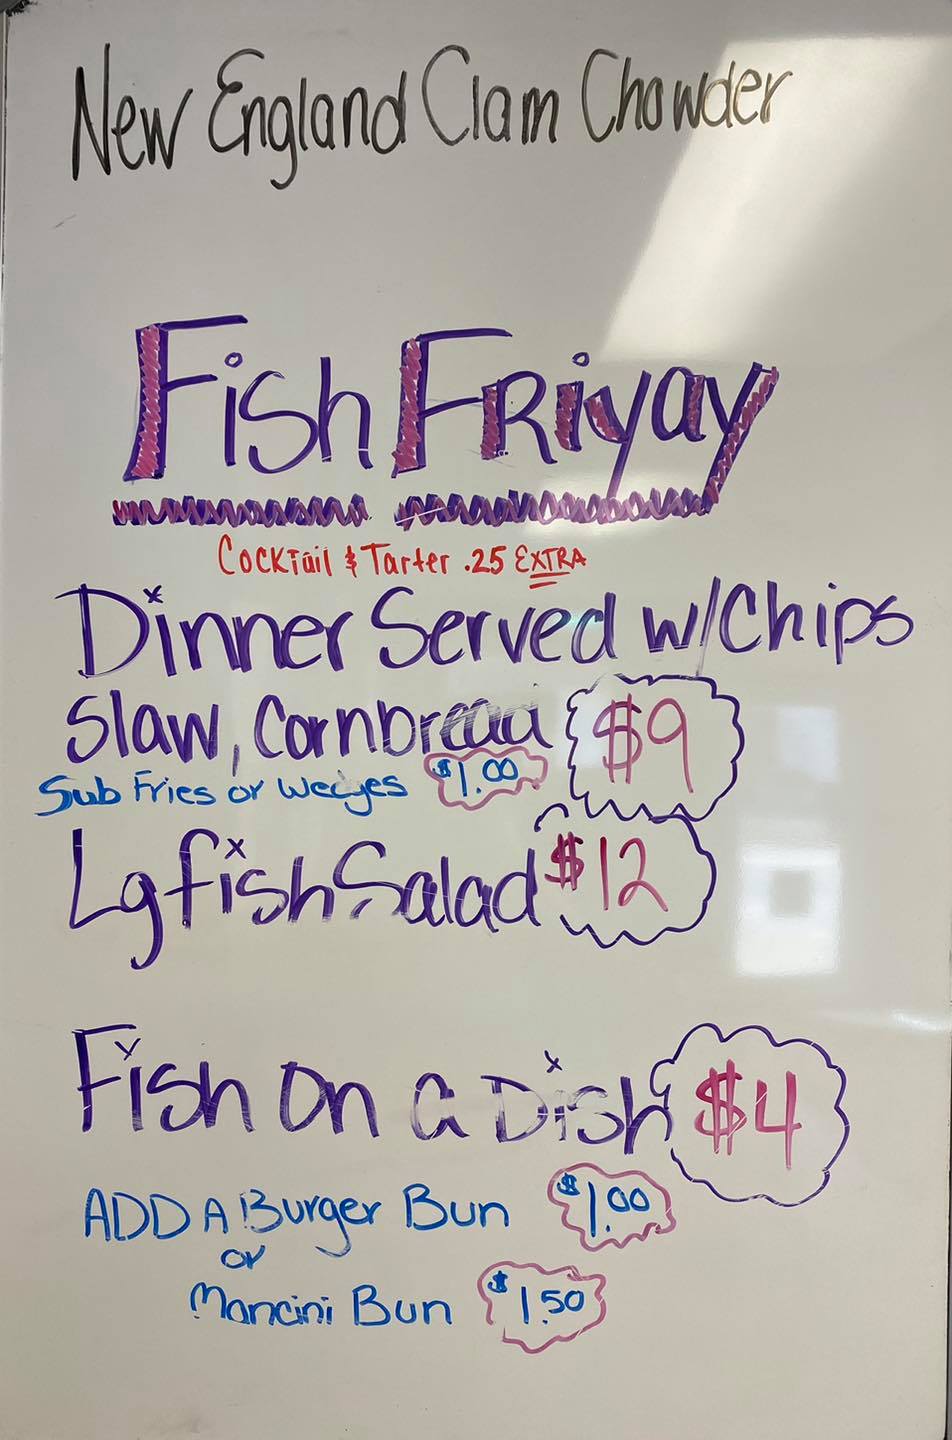 New England Clam Chowder
Fish FRiyay
Cocktail & Tarter .25 EXTRA
Dinner Served w/Chips
Slaw, Cornbread $9
Sub Fries or Wedges $1.00
Lg fish Salad $12
Fish on a Dish $4
ADD A Burger Bun $1.00
or
Mancini Bun $1.50